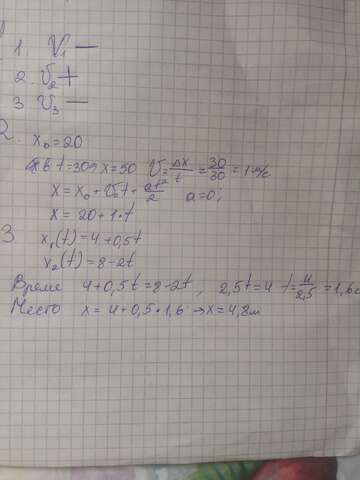 1. V₁ —
2. V₂ +
3. V₃ —
2. x₀ = 20
в t = 30с x = 50 V = Δx/t = 30/30 = 1 м/с
x = x₀ + V₀t + at²/2 a = 0;
x = 20 + 1·t
3. x₁(t) = 4 + 0,5t
x₂(t) = 8 - 2t
Время 4 + 0,5t = 8 - 2t, 2,5t = 4 t = 4/2,5 = 1,6с
Место x = 4 + 0,5·1,6 → x = 4,8м